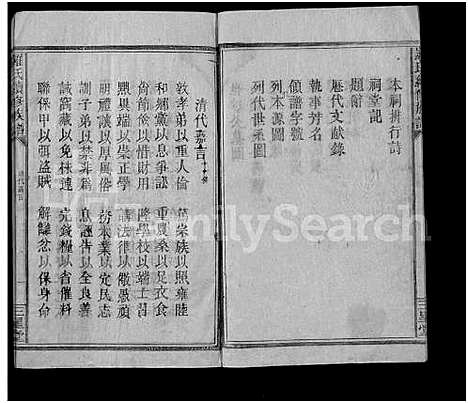 本祠拚行詩
祠堂記
歷代文献錄
領譜字號
執事芳名
列本源圖
列代世系圖
清代嘉言十六条
敦孝弟以重人倫 篤宗族以照雍睦
和鄉黨以息爭訟 重農桑以足衣食
尚節儉以惜財用 隆學校以端士習
黜異端以崇正學 講法律以儆愚頑
明禮讓以厚風俗 務本業以定民志
訓子弟以禁非為 息誣告以全良善
誡窩藏以免株連 完錢糧以省催科
聯保甲以弭盜賊 解讎忿以保身命
羅氏續修族譜
三星堂
FamilySearch